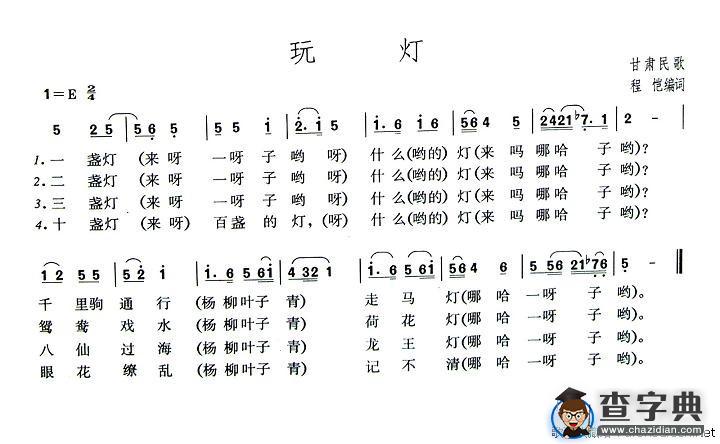 玩 灯
甘肃民歌
1=E 2/4
程 恺编词
5 25 5 6 5 | 5 5 i | 2. i 5 | i. 6 5 6 i | 56 4 5 | 2421 ♭7. 1 | 2 - |
1.一 盏灯 (来呀 一呀子哟呀) 什么(哟的)灯(来吗哪哈 子哟)?
2.二 盏灯 (来呀 一呀子哟呀) 什么(哟的)灯(来吗哪哈 子哟)?
3.三 盏灯 (来呀 一呀子哟呀) 什么(哟的)灯(来吗哪哈 子哟)?
4.十 盏灯 (来呀) 百盏的灯,(呀) 什么(哟的)灯(来吗哪哈 子哟)?
i 2 5 5 | 5 2 i | i. 6 56i | 4 32 1 | i. 6 56i | 56 4 5 | 5 56 21♭76 | 5 - ‖
千里驹通行(杨柳叶子青) 走马灯(哪哈一呀子哟)。
鸳鸯戏水(杨柳叶子青) 荷花灯(哪哈一呀子哟)。
八仙过海(杨柳叶子青) 龙王灯(哪哈一呀子哟)。
眼花缭乱(杨柳叶子青) 记不清(哪哈一呀子哟)。
查字典
www.chazidian.com